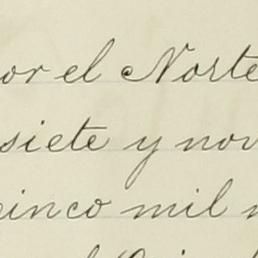 por el Norte
siete y nov
cinco mil n